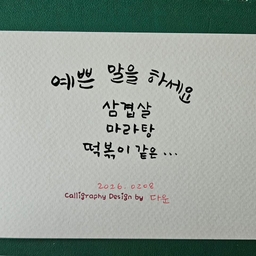 예쁜 말을 하세요
삼겹살
마라탕
떡볶이 같은 ...
2026. 0208
Calligraphy Design by 다온